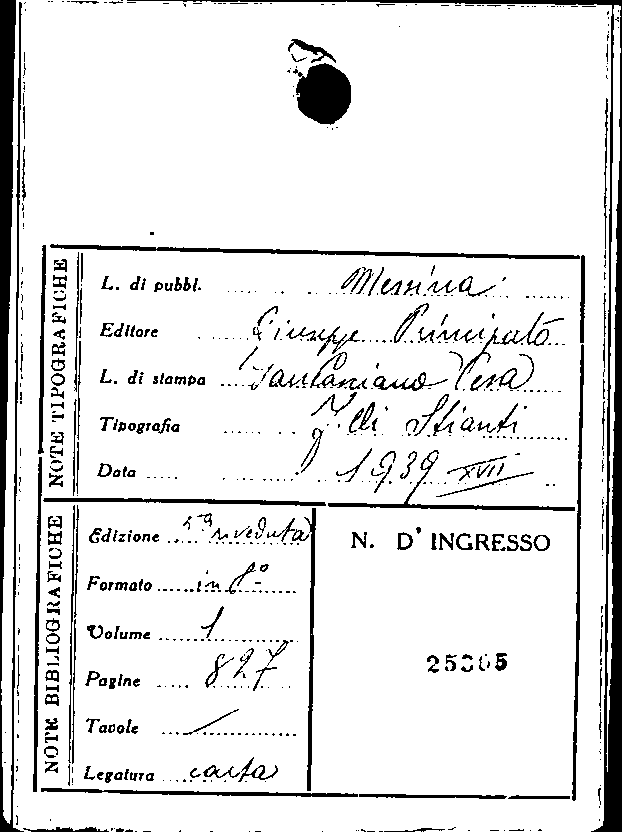 NOTE TIPOGRAFICHE
L. di pubbl. Messina
Editore Giuseppe Principato
L. di stampa Sancasciano Pesa
Tipografia F.lli Stianti
Data 1939 XVII
NOTE BIBLIOGRAFICHE
Edizione riveduta
Formato in 8º
Volume 1
Pagine 827
Tavole /
Legatura carta
N. D' INGRESSO